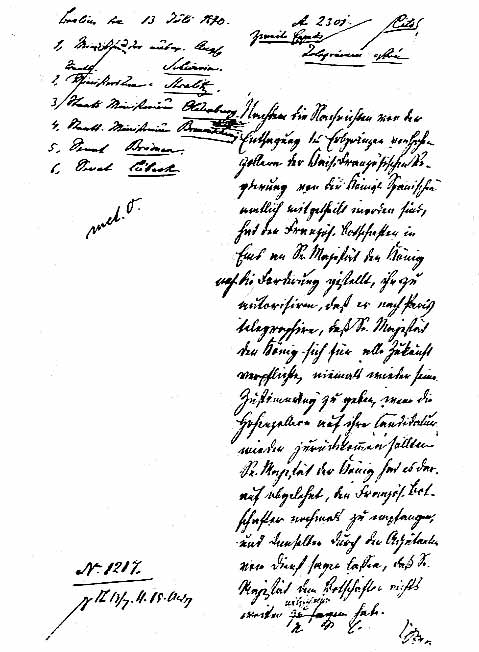 Berlin den 13 Juli 1870.
A 2301.
Cito!
1, Ministerium der ausw. Angl.
Schwerin.
2, Ministerium Strelitz
3, Staats Ministerium Oldenburg
4, Staats Ministerium Braunschw.
5, Senat Bremen
6, Senat Lübeck
Nachdem die Nachrichten von der
Entsagung des Erbprinzen von Hohen-
zollern der Kais. Französischen Re-
gierung von der Königl. Spanischen
amtlich mitgetheilt worden sind,
hat der Französ. Botschafter in
Ems an Se. Majestät den König
noch die Forderung gestellt, ihn zu
autorisiren, daß er nach Paris
telegraphire, daß Se. Majestät
der König sich für alle Zukunft
verpflichte, niemals wieder seine
Zustimmung zu geben, wenn die
Hohenzollern auf ihre Candidatur
wieder zurückkommen sollten.
Se. Majestät der König hat es dar-
auf abgelehnt, den Französ. Bot-
schafter nochmals zu empfangen,
und demselben durch den Adjutanten
vom Dienst sagen lassen, daß Se.
Majestät dem Botschafter nichts
mitzutheilen
weiter zu sagen habe.
N. 1217.